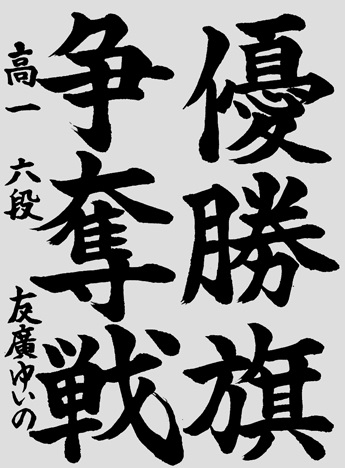 優勝旗
争奪戦
高一 六段 友廣ゆいの